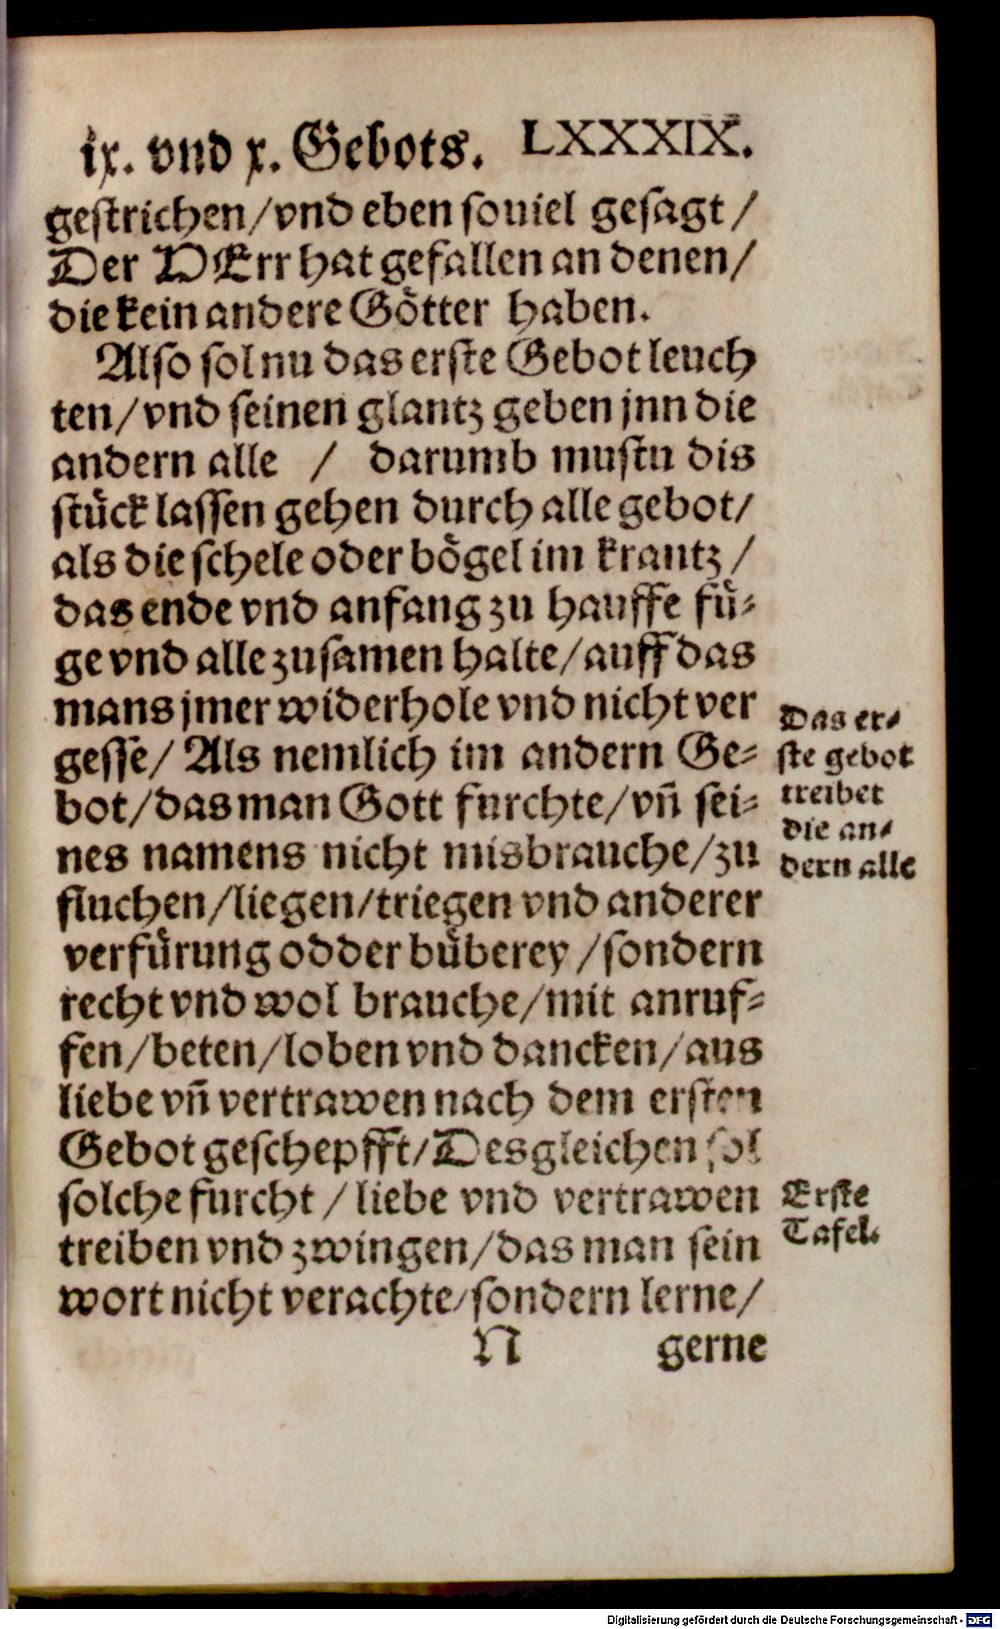 ix. vnd x. Gebots. LXXXIX.
gestrichen/vnd eben souiel gesagt/
Der HErr hat gefallen an denen/
die kein andere Goͤtter haben.
Also sol nu das erste Gebot leuch
ten/vnd seinen glantz geben jnn die
andern alle / darumb mustu dis
stuͤck lassen gehen durch alle gebot/
als die schele oder boͤgel im krantz/
das ende vnd anfang zu hauffe fuͤ-
ge vnd alle zusamen halte/auff das
mans jmer widerhole vnd nicht ver
gesse/ Als nemlich im andern Ge-
bot/das man Gott furchte/vn̄ sei-
nes namens nicht misbrauche/zu
fluchen/liegen/triegen vnd anderer
verfuͤrung odder buͤberey/sondern
recht vnd wol brauche/mit anruf-
fen/beten/loben vnd dancken/aus
liebe vn̄ vertrawen nach dem ersten
Gebot geschepfft/Desgleichen sol
solche furcht / liebe vnd vertrawen
treiben vnd zwingen/das man sein
wort nicht verachte/sondern lerne/
N gerne
Das er-
ste gebot
treibet
die an-
dern alle
Erste
Tafel.
Digitalisierung gefördert durch die Deutsche Forschungsgemeinschaft - DFG